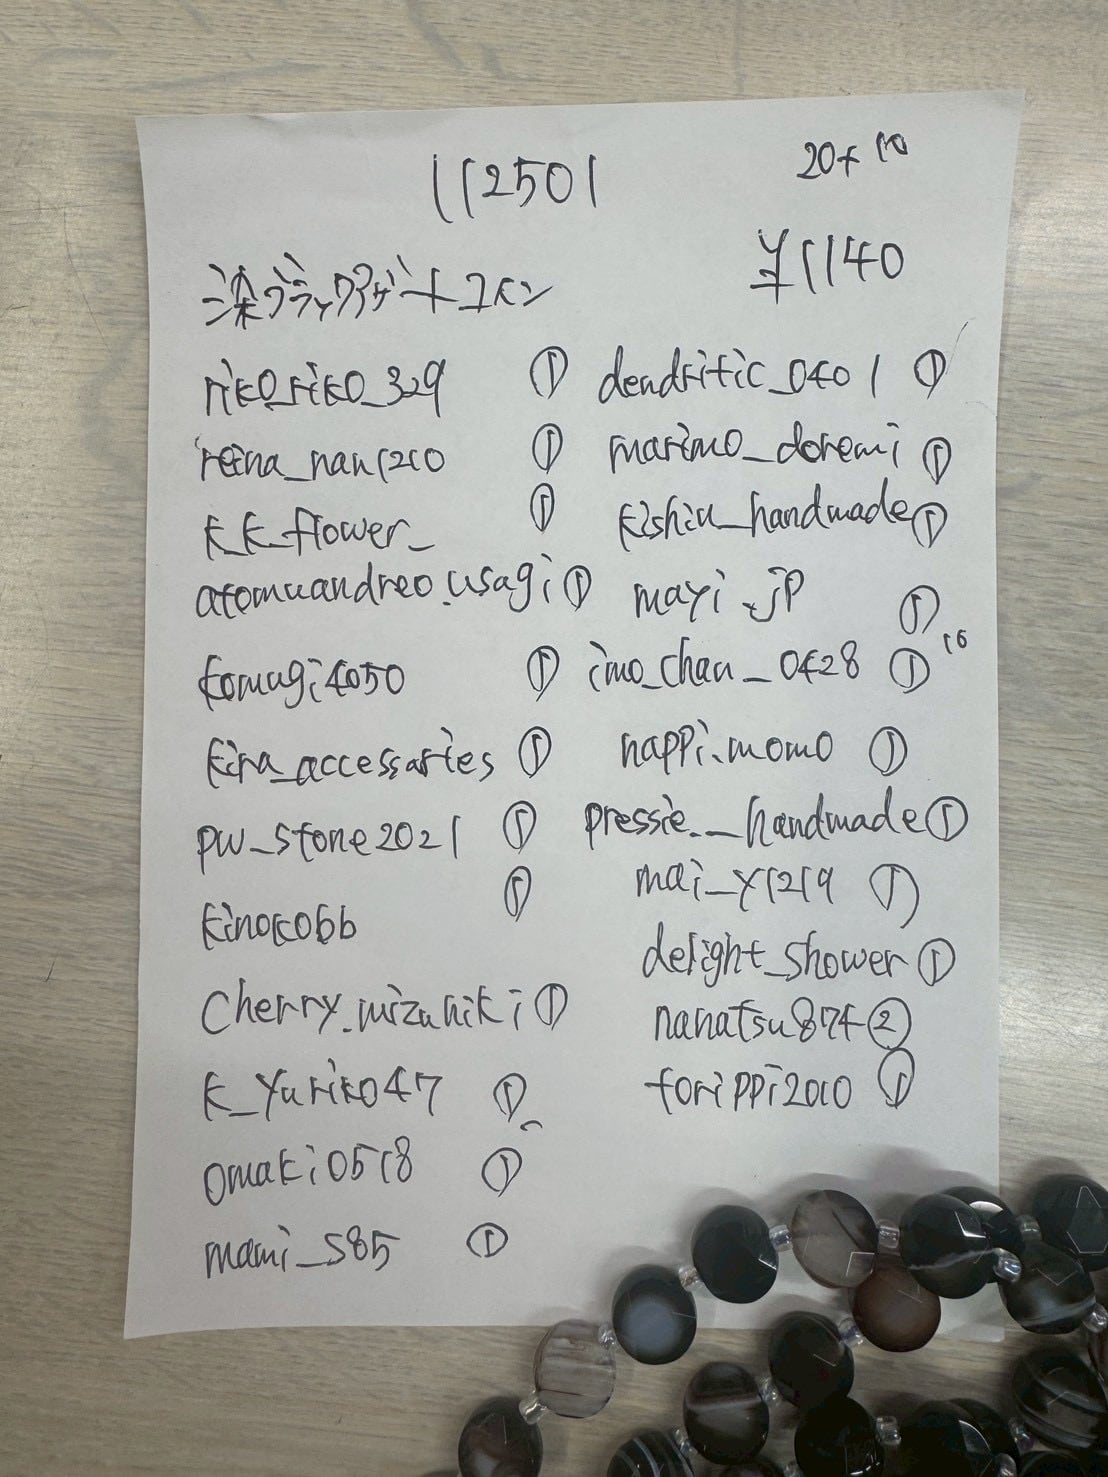 112501
20+10
¥1140
染ブラックアゲートコイン
riko_riko_329 ①
reina_nan1210 ①
k_k_flower_ ①
atomuandreo.usagi ①
komugi4050 ①
kira_accessaries ①
pw_stone2021 ①
kinoko66 ①
cherry.mizuhiki ①
k_yuriko47 ①
omaki0518 ①
mami_585 ①
dendritic_0401 ①
marimo_doremi ①
kishiu_handmade ①
mayi.jp ①
16
imo_chan_0428 ①
nappi.momo ①
pressie.__handmade ①
mai_y1219 ①
delight_shower ①
nanatsu874 ②
torippi2010 ①